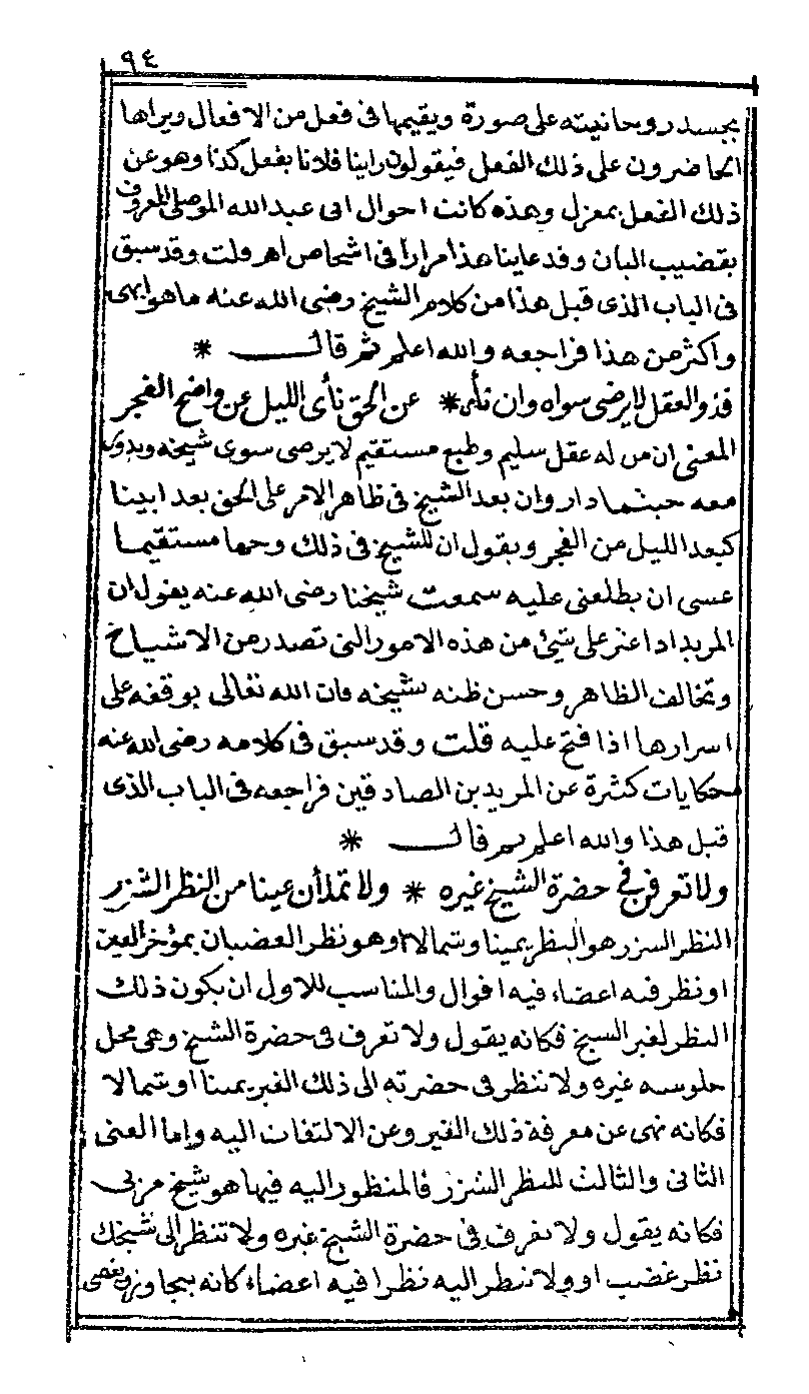 ٩٤
بجسد روحانيته على صورة ويقيمها فى فعل من الافعال ويراها
الحاضرون على ذلك الفعل فيقولون راينا فلانا يفعل كذا وهو عن
ذلك الفعل بمعزل وهذه كانت احوال ابى عبد الله الموصلى المعروف
بقضيب البان وقد عاينا هذا مرارا فى اشخاص اهر قلت وقد سبق
فى الباب الذى قبل هذا من كلام الشيخ رضى الله عنه ما هو ابهى
واكثر من هذا فراجعه والله اعلم ثم قالـــــــ *
فذو العقل لا يرضى سواه وان نأى * عن الحق نأى الليل عن واضح الفجر
المعنى ان من له عقل سليم وطبع مستقيم لا يرضى سوى شيخه ويدور
معه حيثما دار وان بعد الشيخ فى ظاهر الامر على الحق بعدا بينا
كبعد الليل عن الفجر ويقول ان للشيخ فى ذلك وجها مستقيما
عسى ان يطلعنى عليه سمعت شيخنا رضى الله عنه يقول ان
المريد اذا عثر على شئ من هذه الامور التى تصدر من الاشياخ
وتخالف الظاهر وحسن ظنه بشيخه فان الله تعالى يوقفه على
اسرارها اذا فتح عليه قلت وقد سبق فى كلامه رضى الله عنه
حكايات كثرة عن المريدين الصادقين فراجعه فى الباب الذى
قبل هذا والله اعلم ثم قالـــــــ *
ولا تعرفن فى حضرة الشيخ غيره * ولا تملأن عينا من النظر الشزر
النظر الشزر هو النظر يمينا وشمالا اوهو نظر الغضبان بمؤخر العين
او نظر فيه اعضاء فيه اقوال والمناسب للاول ان يكون ذلك
النظر لغير الشيخ فكانه يقول ولا تعرف فى حضرة الشيخ وهى محل
جلوسه غيره ولا تنظر فى حضرته الى ذلك الغير يمينا او شمالا
فكانه نهى عن معرفة ذلك الغير وعن الالتفات اليه واما المعنى
الثانى والثالث للنظر الشزر فالمنظور اليه فيها هو شيخ مربى
فكانه يقول ولا تعرف فى حضرة الشيخ غيره ولا تنظر الى شيخك
نظر غضب او ولا تنظر اليه نظرا فيه اعضاء كانه يتجاوز